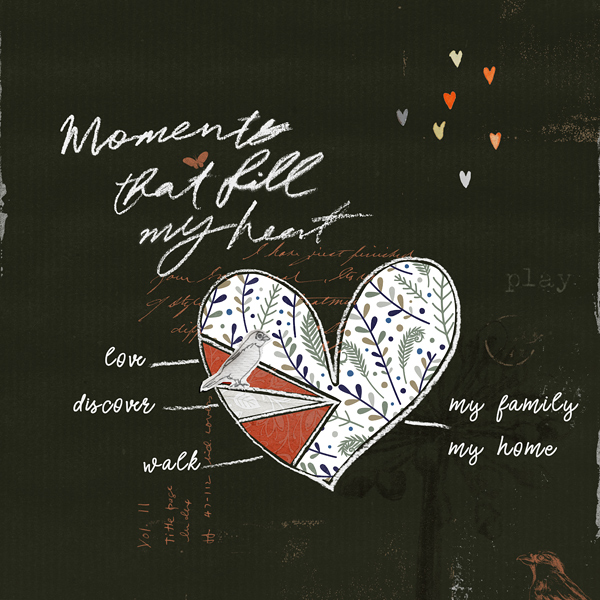 Moments
that fill
my heart
I have just finished
your
of style
play.
love
discover
walk
my family
my home
Vol. 11
Title page
Index